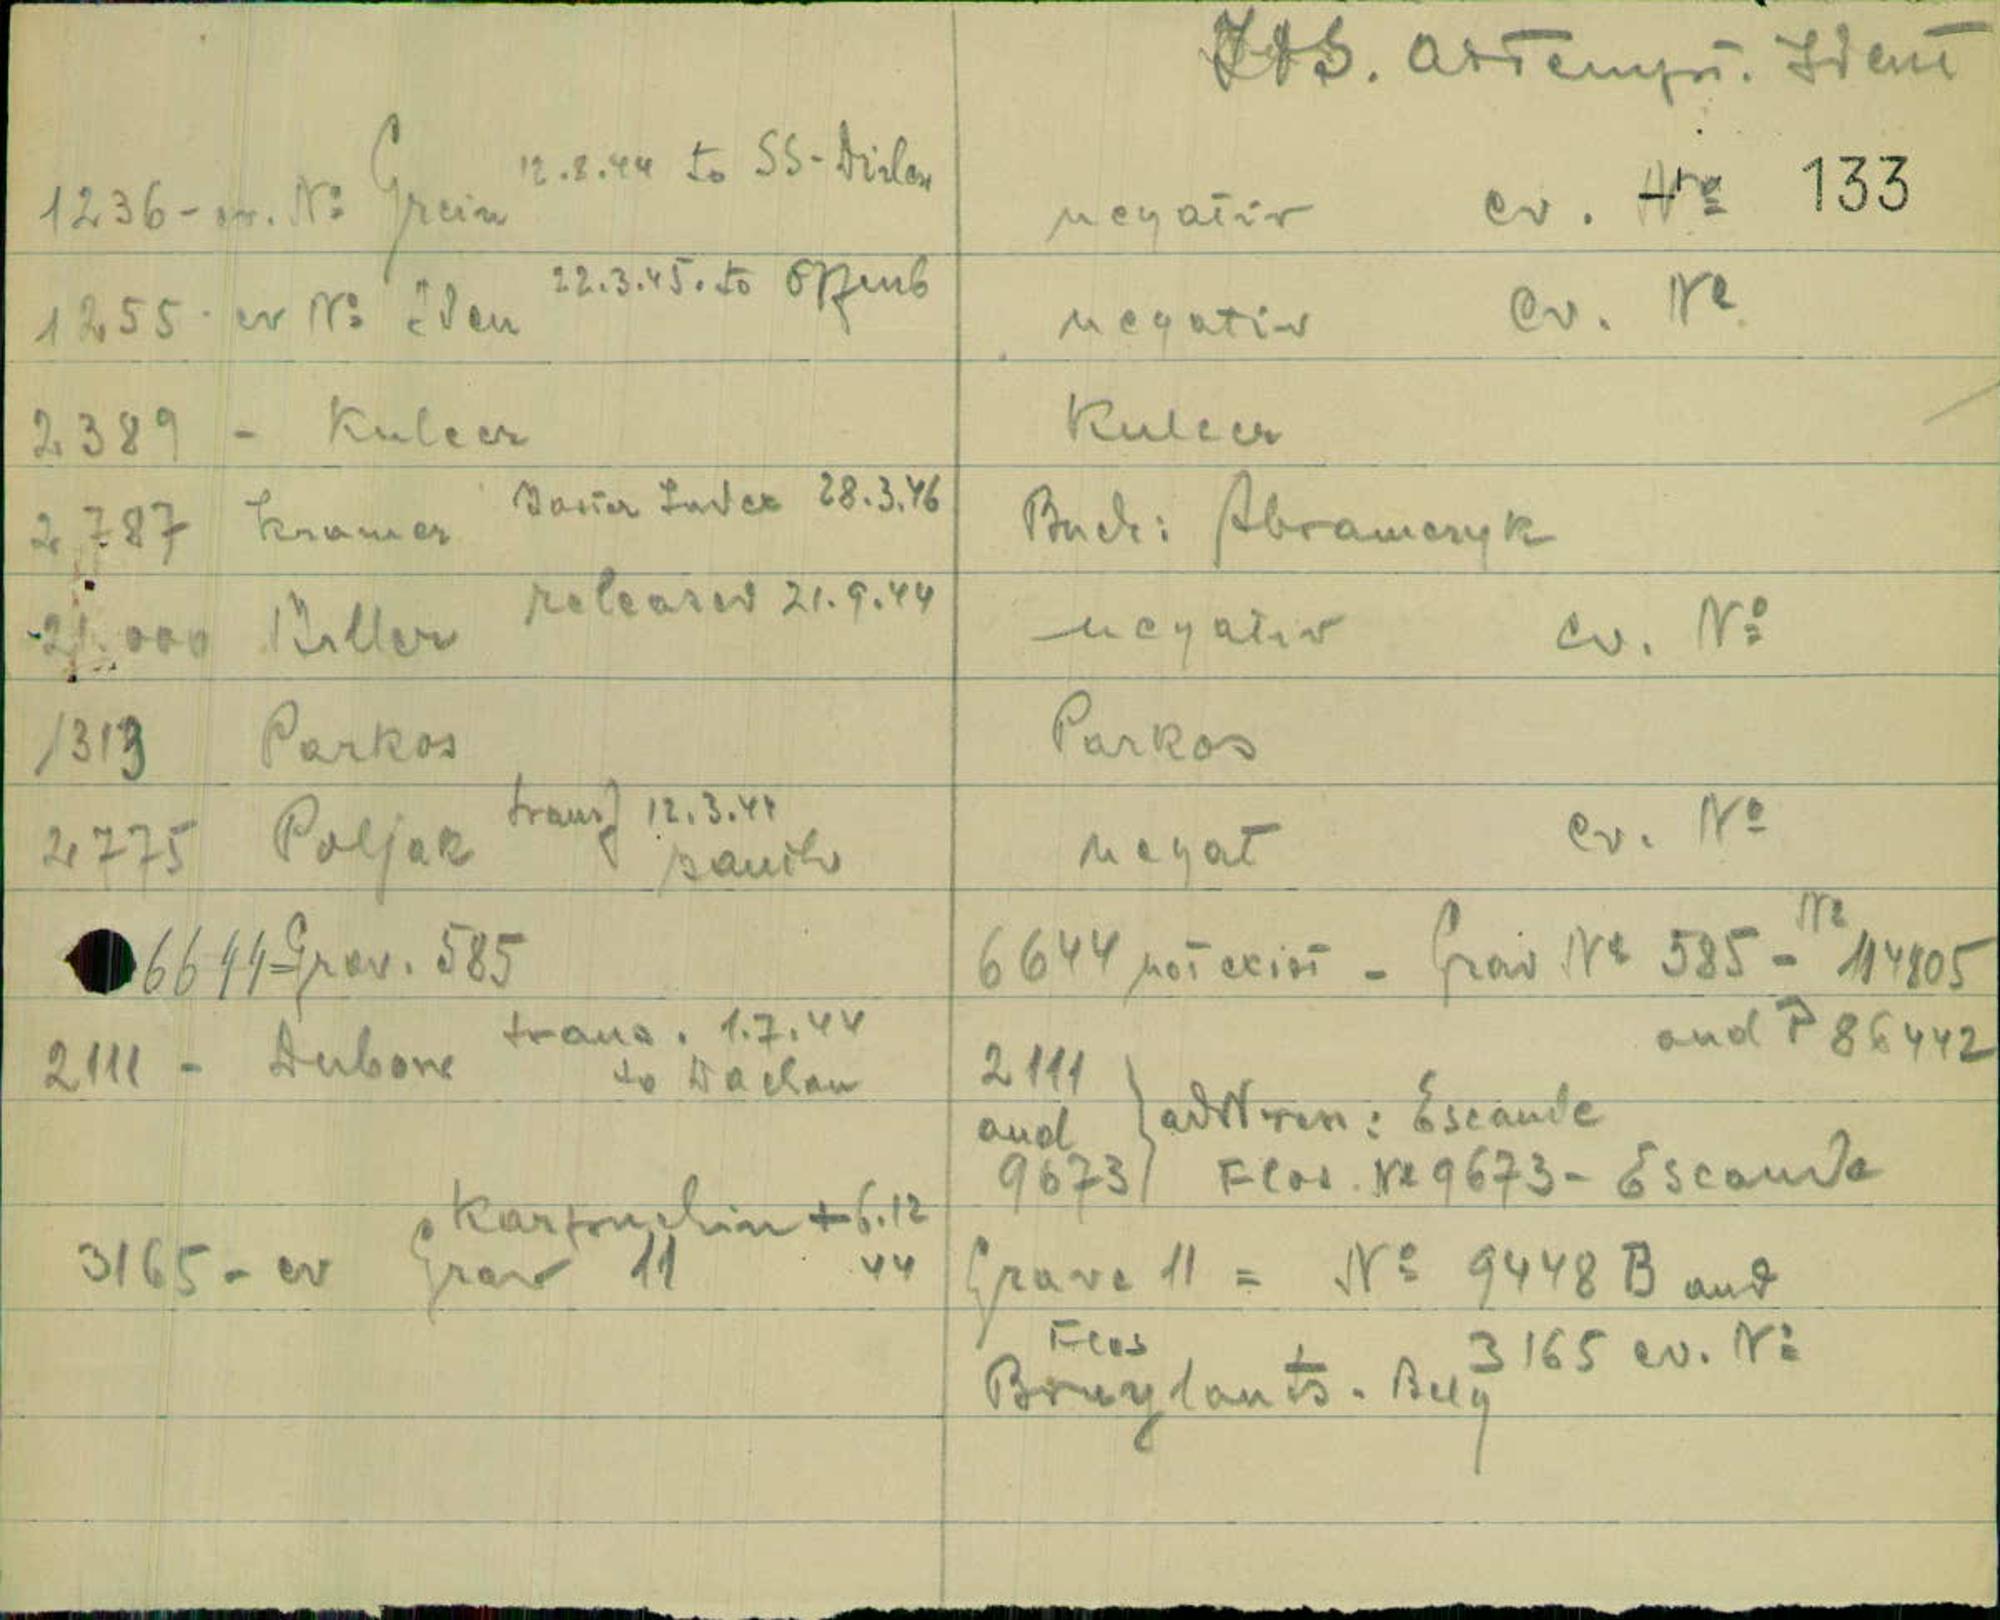 Attempt. Ident
133
1236 - ev. Nº Grein 12.8.44 to SS-Dirlew negativ ev. Nº
1255 - ev Nº 22.3.45. to negativ ev. Nº
2389 - Kulcer Kulcer
2787 Kramer Index 28.3.46 Buch: Abramczyk
21.000 released 21.9.44 negativ ev. Nº
1313 Parkos Parkos
2775 Poljak transf 12.3.44 negat ev. Nº
6644 = Grav. 585 6644 not exist - Grav Nº 585 - Nº 114805
and P 86442
2111 - Dubore trans. 1.7.44 2111
to Dachau
and
9673 } address: Escande
Flos. Nº 9673 - Escande
+ 6.12
44
3165 - ev Grav 11 Grave 11 = Nº 9448 B and
Flos 3165 ev. Nº
Bruylants. Belg